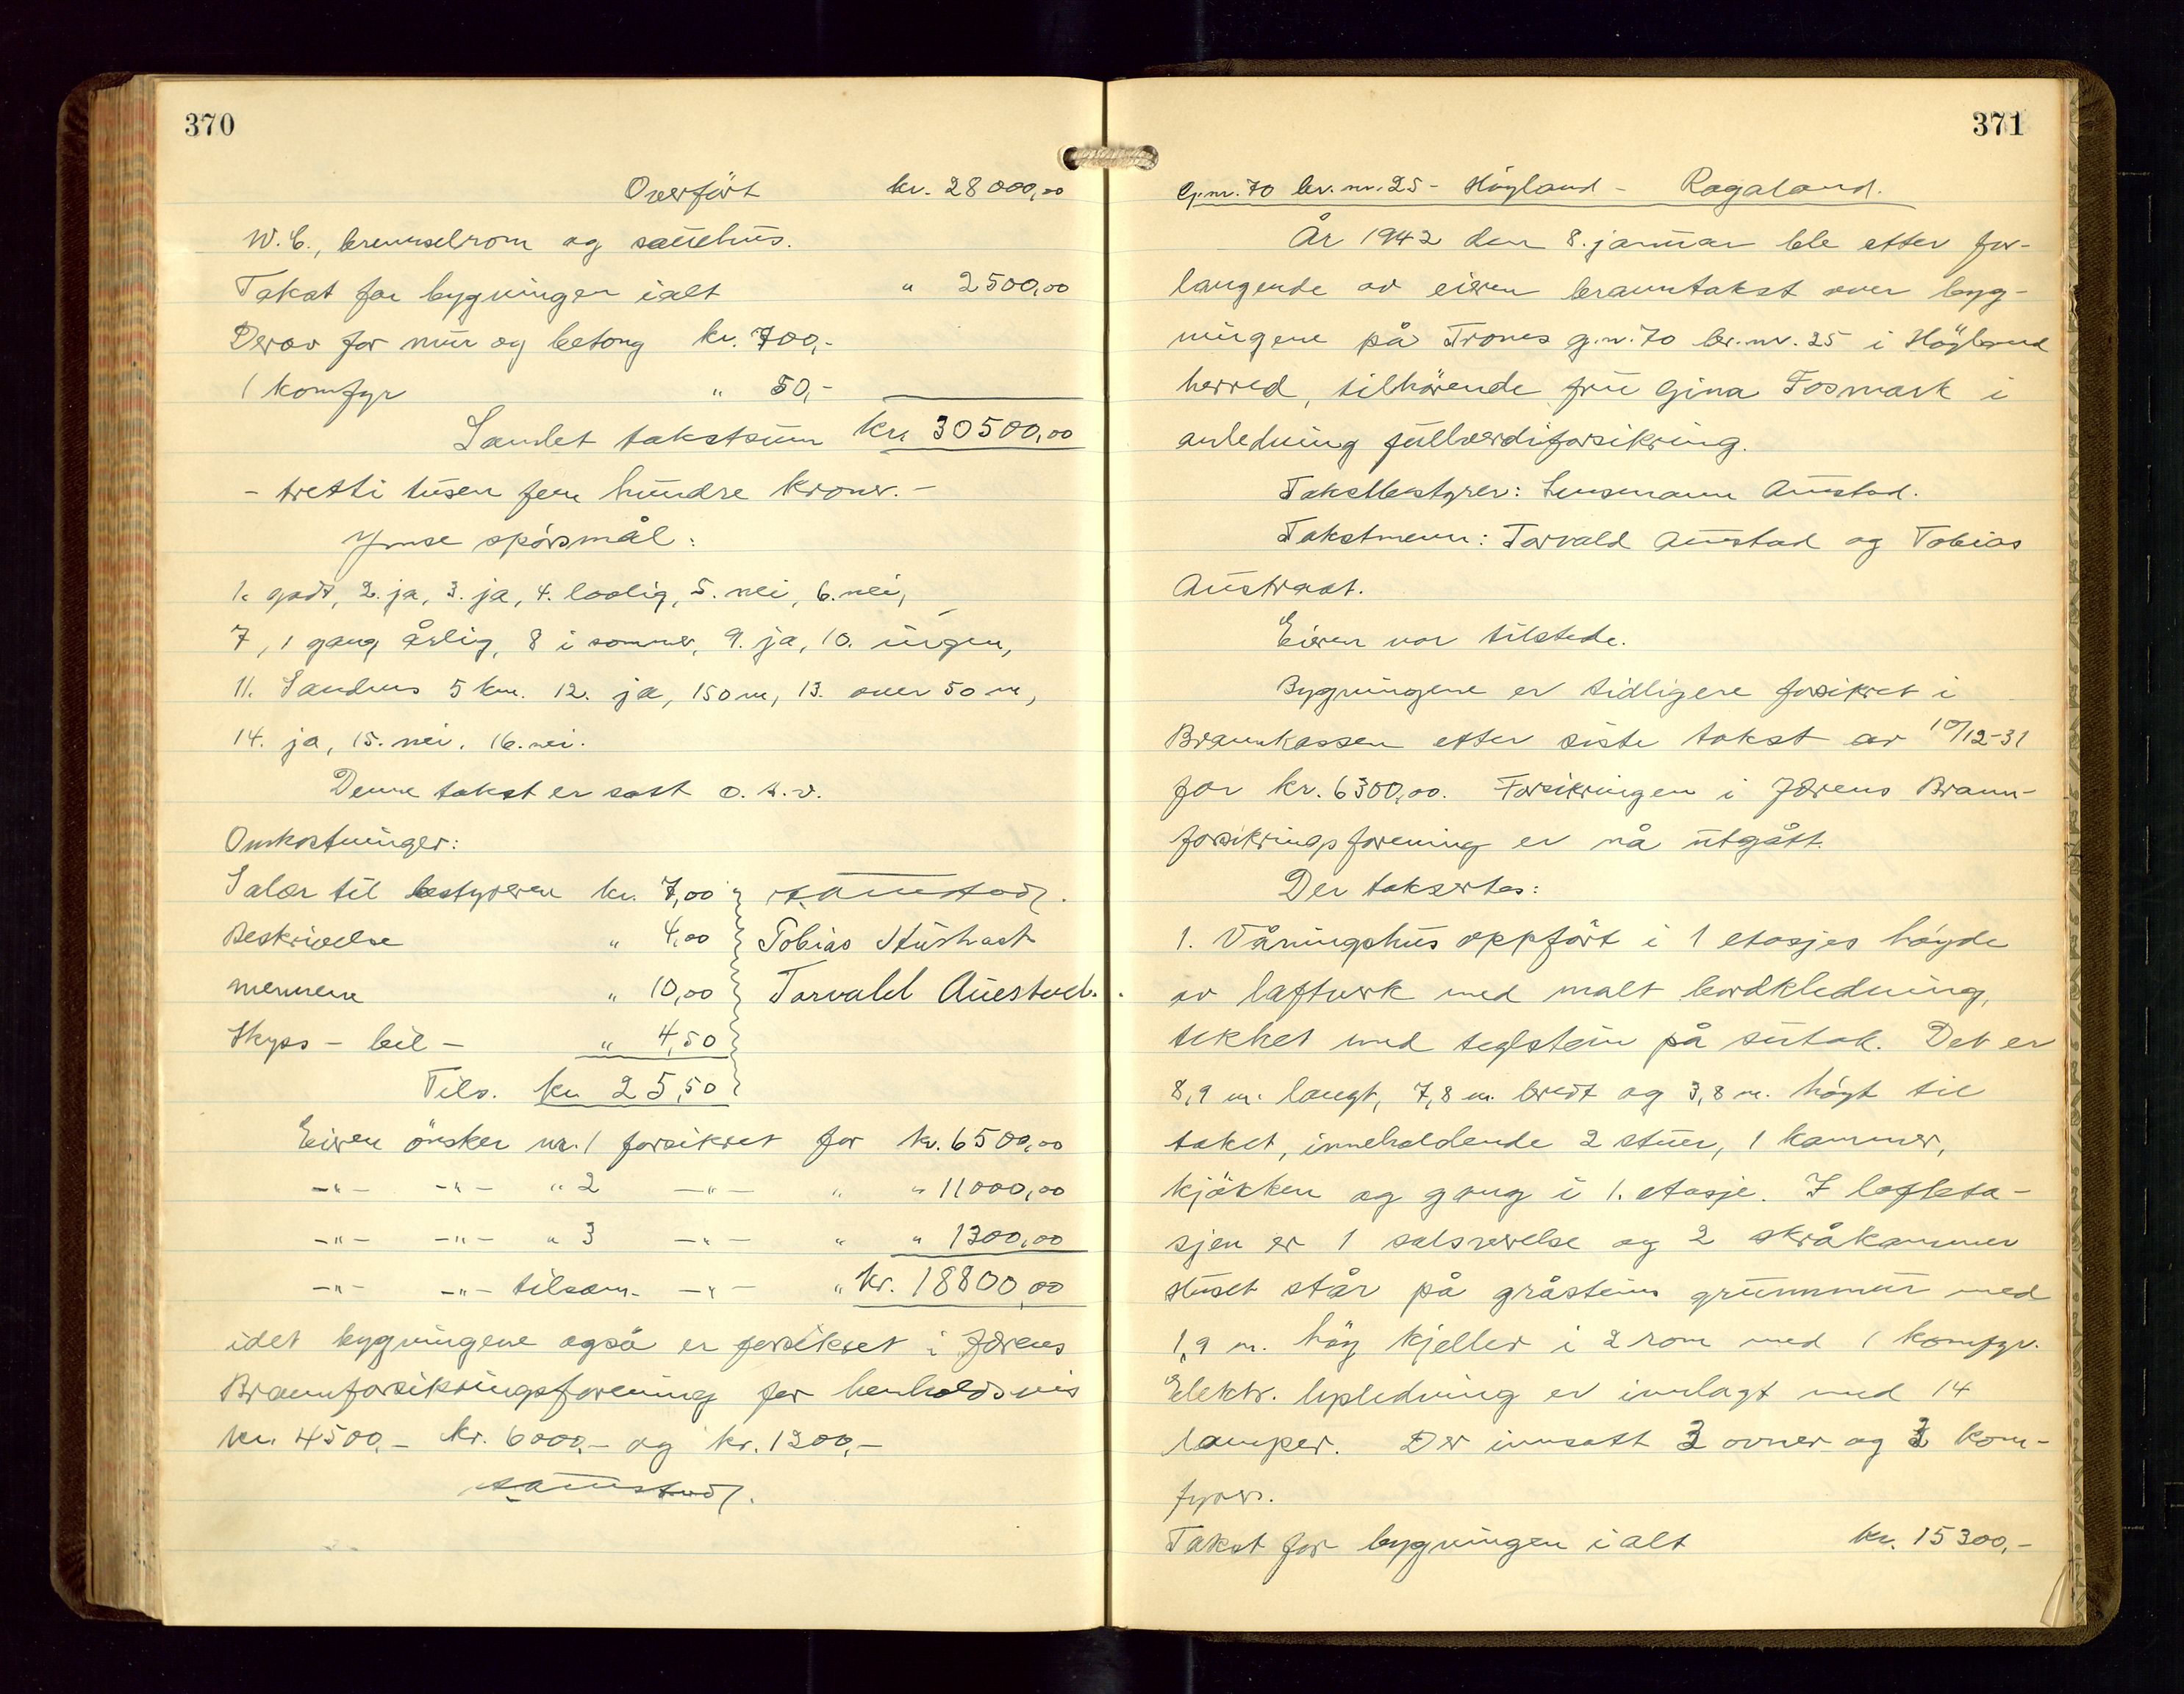 370
Overfört kr. 28000,00
W.C., brenselrom og sauehus.
Takst for bygningen ialt " 2500,00
Derav for mur og betong kr. 700,-
1 komfyr " 50,-
Samlet takstsum kr. 30500,00
- tretti tusen fem hundre kroner. -
Ymse spörsmål:
1. godt, 2. ja, 3. ja, 4. bolig, 5. nei, 6. nei,
7, 1 gang årlig, 8 i sommer, 9. ja, 10. ingen,
11. Sandnes 5 km. 12. ja, 150 m, 13. over 50 m,
14. ja, 15. nei. 16. nei.
Denne takst er satt o.s.v.
Omkostninger:
Salær til bestyreren kr. 7,00 Auestad.
Beskrivelse " 4,00 Tobias Austraat
mennene " 10,00 Torvald Auestad.
Skyss - bil - " 4,50
Tils. kr. 25,50
Eieren önsker nr. 1 forsikret for kr. 6500,00
-"- -"- " 2 -"- " " 11000,00
-"- -"- " 3 -"- " " 1300,00
-"- -"- tilsam. -"- " kr. 18800,00
idet bygningene også er forsikret i Jærens
Brannforsikringsforening for henholdsvis
kr. 4500,- kr. 6000,- og kr. 1200,-
Auestad.
371
G.nr. 70 br.nr. 25 - Höyland - Rogaland.
År 1942 den 8. januar ble etter for-
langende av eieren branntakst over byg-
ningene på Trones g.nr. 70 br.nr. 25 i Höyland
herred, tilhörende frue Gina Fosmark i
anledning fullverdiforsikring.
Takstbestyrer: Lensmann Auestad.
Takstmenn: Torvald Auestad og Tobias
Austraat.
Eieren var tilstede.
Bygningene er tidligere forsikret i
Brannkassen etter siste takst av 10/12-31
for kr. 6300,00. Forsikringen i Jærens Brann-
forsikringsforening er nå utgått.
Der takseres:
1. Våningshus oppfört i 1 etasjes höyde
av laftverk med malt bordkledning,
tekket med teglstein på sutak. Det er
8,9 m. langt, 7,8 m. bredt og 3,8 m. högt til
taket, inneholdende 2 stuer, 1 kammer,
kjökken og gang i 1. etasje. I lofteta-
sjen er 1 salsverelse og 2 skråkammer
Huset står på gråsteins grunnmur med
1,9 m. höy kjeller i 2 rom med 1 komfyr.
Elektr. lysledning er innlagt med 14
lamper. Der innsatt 3 ovner og 2 kom-
fyrer.
Takst for bygningen ialt kr. 15300,-